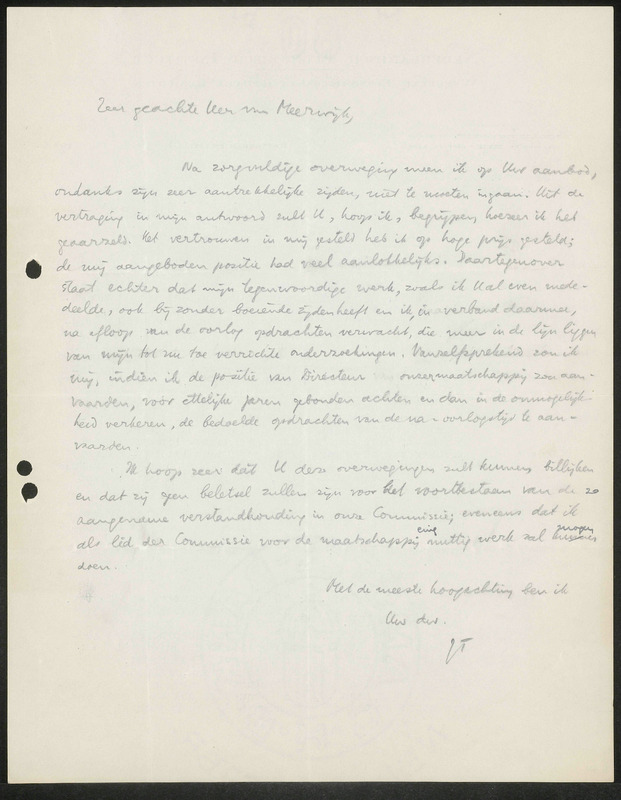 Zeer geachte Heer van Meerwijk,
Na zorgvuldige overweging meen ik op Uw aanbod,
ondanks zijn zeer aantrekkelijke zijden, niet te moeten ingaan. Uit de
vertraging in mijn antwoord zult U, hoop ik, begrijpen, hoezeer ik heb
geaarzeld. Het vertrouwen in mij gesteld heb ik op hoge prijs gesteld;
de mij aangeboden positie had veel aanlokkelijks. Daartegenover
staat echter dat mijn tegenwoordige werk, zoals ik U al even mede-
deelde, ook bijzonder boeiende zijden heeft en ik, in verband daarmee,
na afloop van de oorlog opdrachten verwacht, die meer in de lijn liggen
van mijn tot nu toe verrichte onderzoekingen. Vanzelfsprekend zou ik
mij, indien ik de positie van Directeur onzer maatschappij zou aan-
vaarden, voor ettelijke jaren gebonden achten en dan in de onmogelijk-
heid verkeren, de bedoelde opdrachten van de na-oorlogstijd te aan-
vaarden.
Ik hoop zeer dat U deze overwegingen zult kunnen billijken
en dat zij geen beletsel zullen zijn voor het voortbestaan van de zo
aangename verstandhouding in onze Commissie; eveneens dat ik
als lid der Commissie voor de maatschappij enig nuttig werk zal mogen
doen.
Met de meeste hoogachting ben ik
Uw dw.
JT